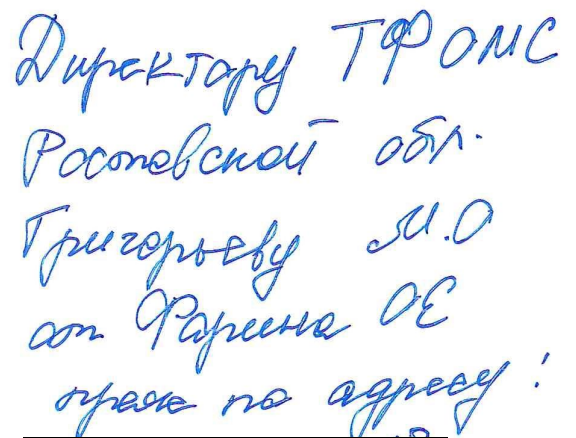 Директору ТФОМС
Ростовской обл.
Григорьеву М.О
от Фарина ОЕ
прож по адресу: